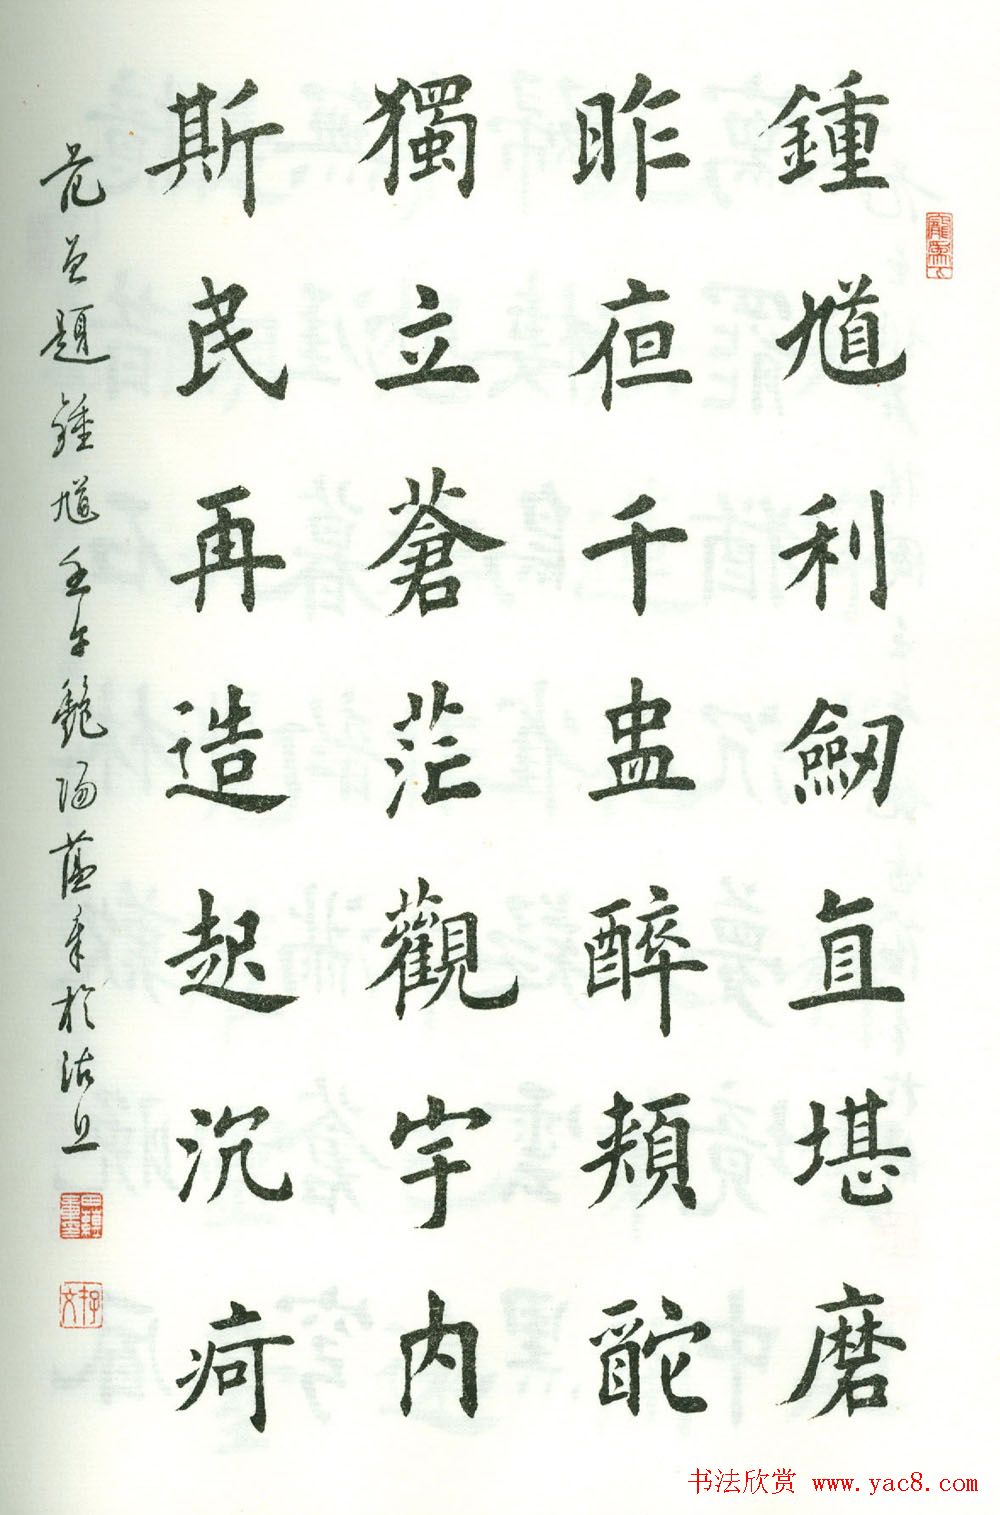 鍾馗利劒直堪磨
昨亱千盅醉頰酡
獨立蒼茫觀宇内
斯民再造起沉疴
范曾題鍾馗壬午艷陽藴章於沽上
书法欣赏 www.yac8.com